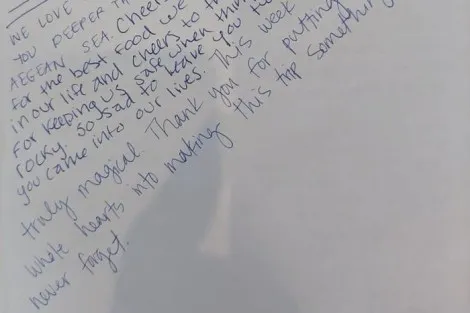 WE LOVE
YOU DEEPER THA
AEGEAN SEA. Cheers
for the best food we
in our life and cheers to th
For keeping us safe when thin
rocky. So sad to leave you
you came into our lives. This week
truly magical. Thank you for putting
whole hearts into making this trip something
never forget.